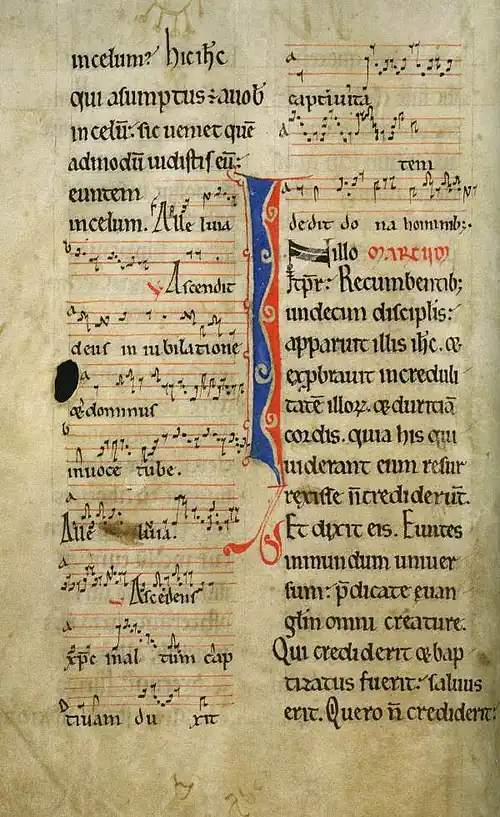 incelum? hic ihc
qui asumptus ÷ auob
incelu. sic ueniet que
admodu uidistis eu:
euntem
incelum. Alle luia
Ascendit
deus in iubilatione
& dominus
inuoce tube.
Alle luia.
Ascedens
xpc in al tum cap
tiuam du xit
captiuita
tem
dedit do na hominib;
Illo MARCUM
tpr: Recumbentib;
undecim disciplis:
apparuit illis ihc. &
expbrauit increduli
tate illoꝝ. & duricia
cordis. quia his qui
uiderant eum resur
rexisse n crediderut.
Et dixit eis. Euntes
inmundum uniuer
sum: pdicate euan
gliu omni creature.
Qui crediderit & bap
tizatus fuerit: saluus
erit. Quero n crediderit: